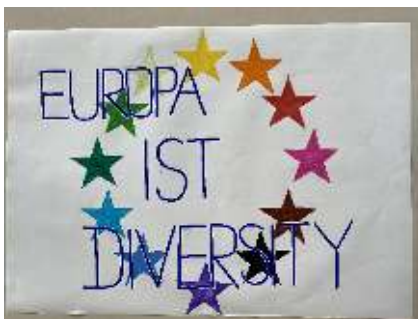 EUROPA
IST
DIVERSITY